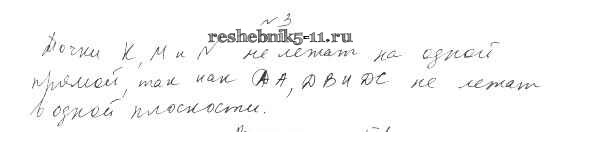 № 3
reshebnik5-11.ru
Точки K, M и N не лежат на одной
прямой, так как DA, DB и DC не лежат
в одной плоскости.